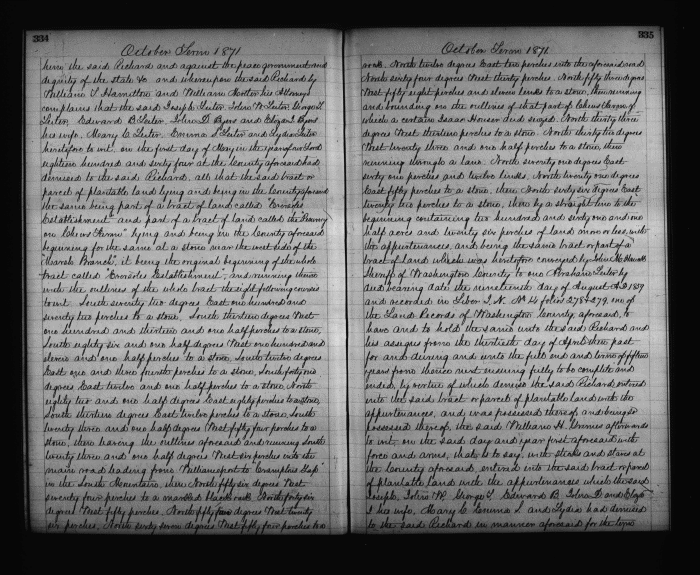 334
October Term 1871
him the said Richard and against the peace government and
dignity of the state &c. and whereupon the said Richard by
William T. Hamilton and William his Attorneys
complains that the said Joseph John W. George L.
Edward B. John D. Byers and Byers
his wife, Mary C. Emma S. and Lydia
heretofore to wit, on the first day of May in the year of our Lord
eighteen hundred and sixty four at the County aforesaid had
demised to the said Richard, all that the said tract or
parcel of plantable land lying and being in the County aforesaid
the same being part of a tract of land called "
Establishment" and part of a tract of land called the
on Chews Farm" lying and being in the County aforesaid
beginning for the same at a stone near the west side of the
"Marsh Branch", it being the original beginning of the whole
tract called " Establishment", and running thence
with the outlines of the whole tract the following courses
to wit. South seventy two degrees East one hundred and
seventy two perches to a stone, South thirteen degrees West
one hundred and thirteen and one half perches to a stone,
South eighty six and one half degrees West one hundred and
eleven and one half perches to a stone, South twelve degrees
East one and three fourth perches to a stone, South forty one
degrees East twelve and one half perches to a stone, North
eighty two and one half degrees East eighty perches to a stone,
South thirteen degrees East twelve perches to a stone, South
twenty three and one half degrees West fifty four perches to a
stone, then leaving the outlines aforesaid and running South
twenty three and one half degrees West six perches into the
main road leading from Williamsport to Gap"
in the South Mountain, then North fifty six degrees West
seventy four perches to a marked black oak. North forty six
degrees West fifty perches. North fifty degrees West twenty
six perches, North sixty seven degrees West fifty four perches to a
335
October Term 1871
rock. North twelve degrees East ten perches into the aforesaid road
North sixty four degrees West thirty perches. North fifty three degrees
West fifty eight perches and eleven links to a stone, then running
and bounding on the outlines of that part of Chews Farm of
which a certain Isaac Houser died seized. North thirty three
degrees West thirteen perches to a stone. North thirty two degrees
West twenty three and one half perches to a stone, then
running through a lane. North seventy one degrees East
sixty one perches and twelve links. North twenty one degrees
East fifty perches to a stone, then North sixty six degrees East
twenty two perches to a stone, then by a straight line to the
beginning containing two hundred and sixty one and one
half acres and twenty six perches of land more or less, with
the appurtenances, and being the same tract or part of a
tract of land which was heretofore conveyed by John
Sheriff of Washington County to one Abraham by
deed bearing date the nineteenth day of August A.D. 1839
and recorded in Liber No. 14 folios 278 & 279, one of
the Land Records of Washington County aforesaid, to
have and to hold the same unto the said Richard and
his assigns from the thirtieth day of April then past
for and during and unto the full end and term of fifteen
years from thence next ensuing fully to be complete and
ended, by virtue of which demise the said Richard entered
into the said tract or parcel of plantable land with the
appurtenances, and was possessed thereof, and being so
possessed thereof, the said William H. Grimes afterwards
to wit. on the said day and year first aforesaid with
force and arms, that is to say, with sticks and staves at
the County aforesaid, entered into the said tract or parcel
of plantable land with the appurtenances which the said
Joseph, John W. George L. Edward B. John D. and
his wife, Mary C. Emma S. and Lydia had demised
to the said Richard in manner aforesaid for the term